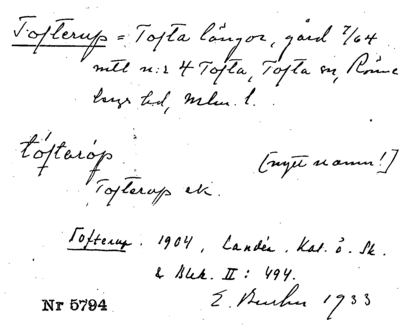 Tofterup = Tofta längor, gård 7/64
mtl n:r 4 Tofta, Tofta sn, Rönne
bergs hd, Mlm. l.
tófteróp [nytt namn!]
Tofterup ek.
Tofterup. 1904, Landér. Kat. ö. Sk.
& Blek. II: 494.
E. 1933
Nr 5794